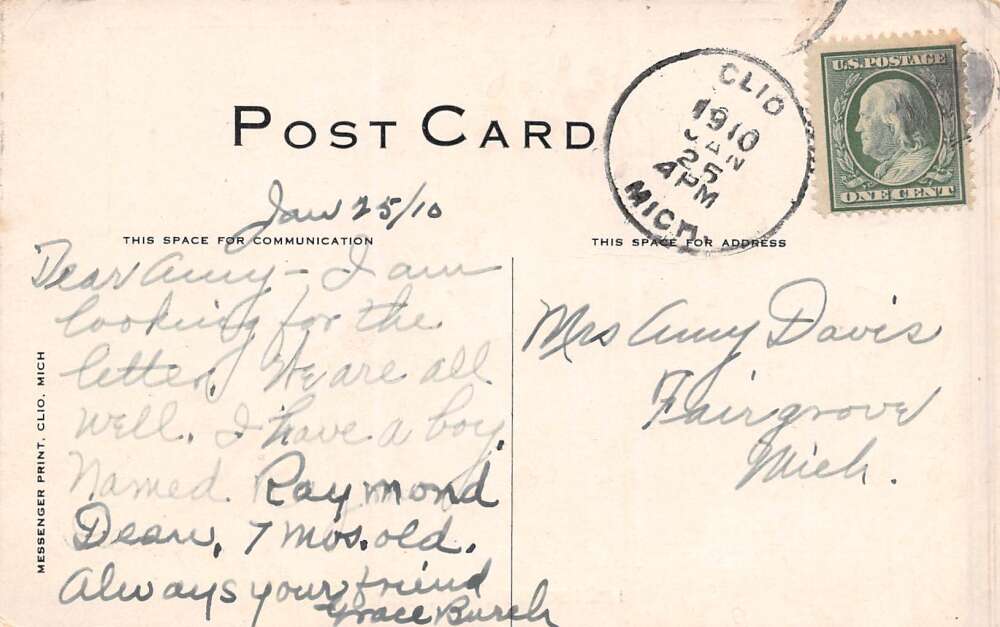 POST CARD
CLIO
1910
JAN
25
4 PM
MICH.
U.S. POSTAGE
ONE CENT
Jan 25/10
THIS SPACE FOR COMMUNICATION
THIS SPACE FOR ADDRESS
Dear Amy - I am
looking for the
letter. We are all
well. I have a boy
Named Raymond
Dean, 7 mos. old.
Always your friend
Grace Burch
Mrs Amy Davis
Fairgrove
Mich.
MESSENGER PRINT, CLIO, MICH